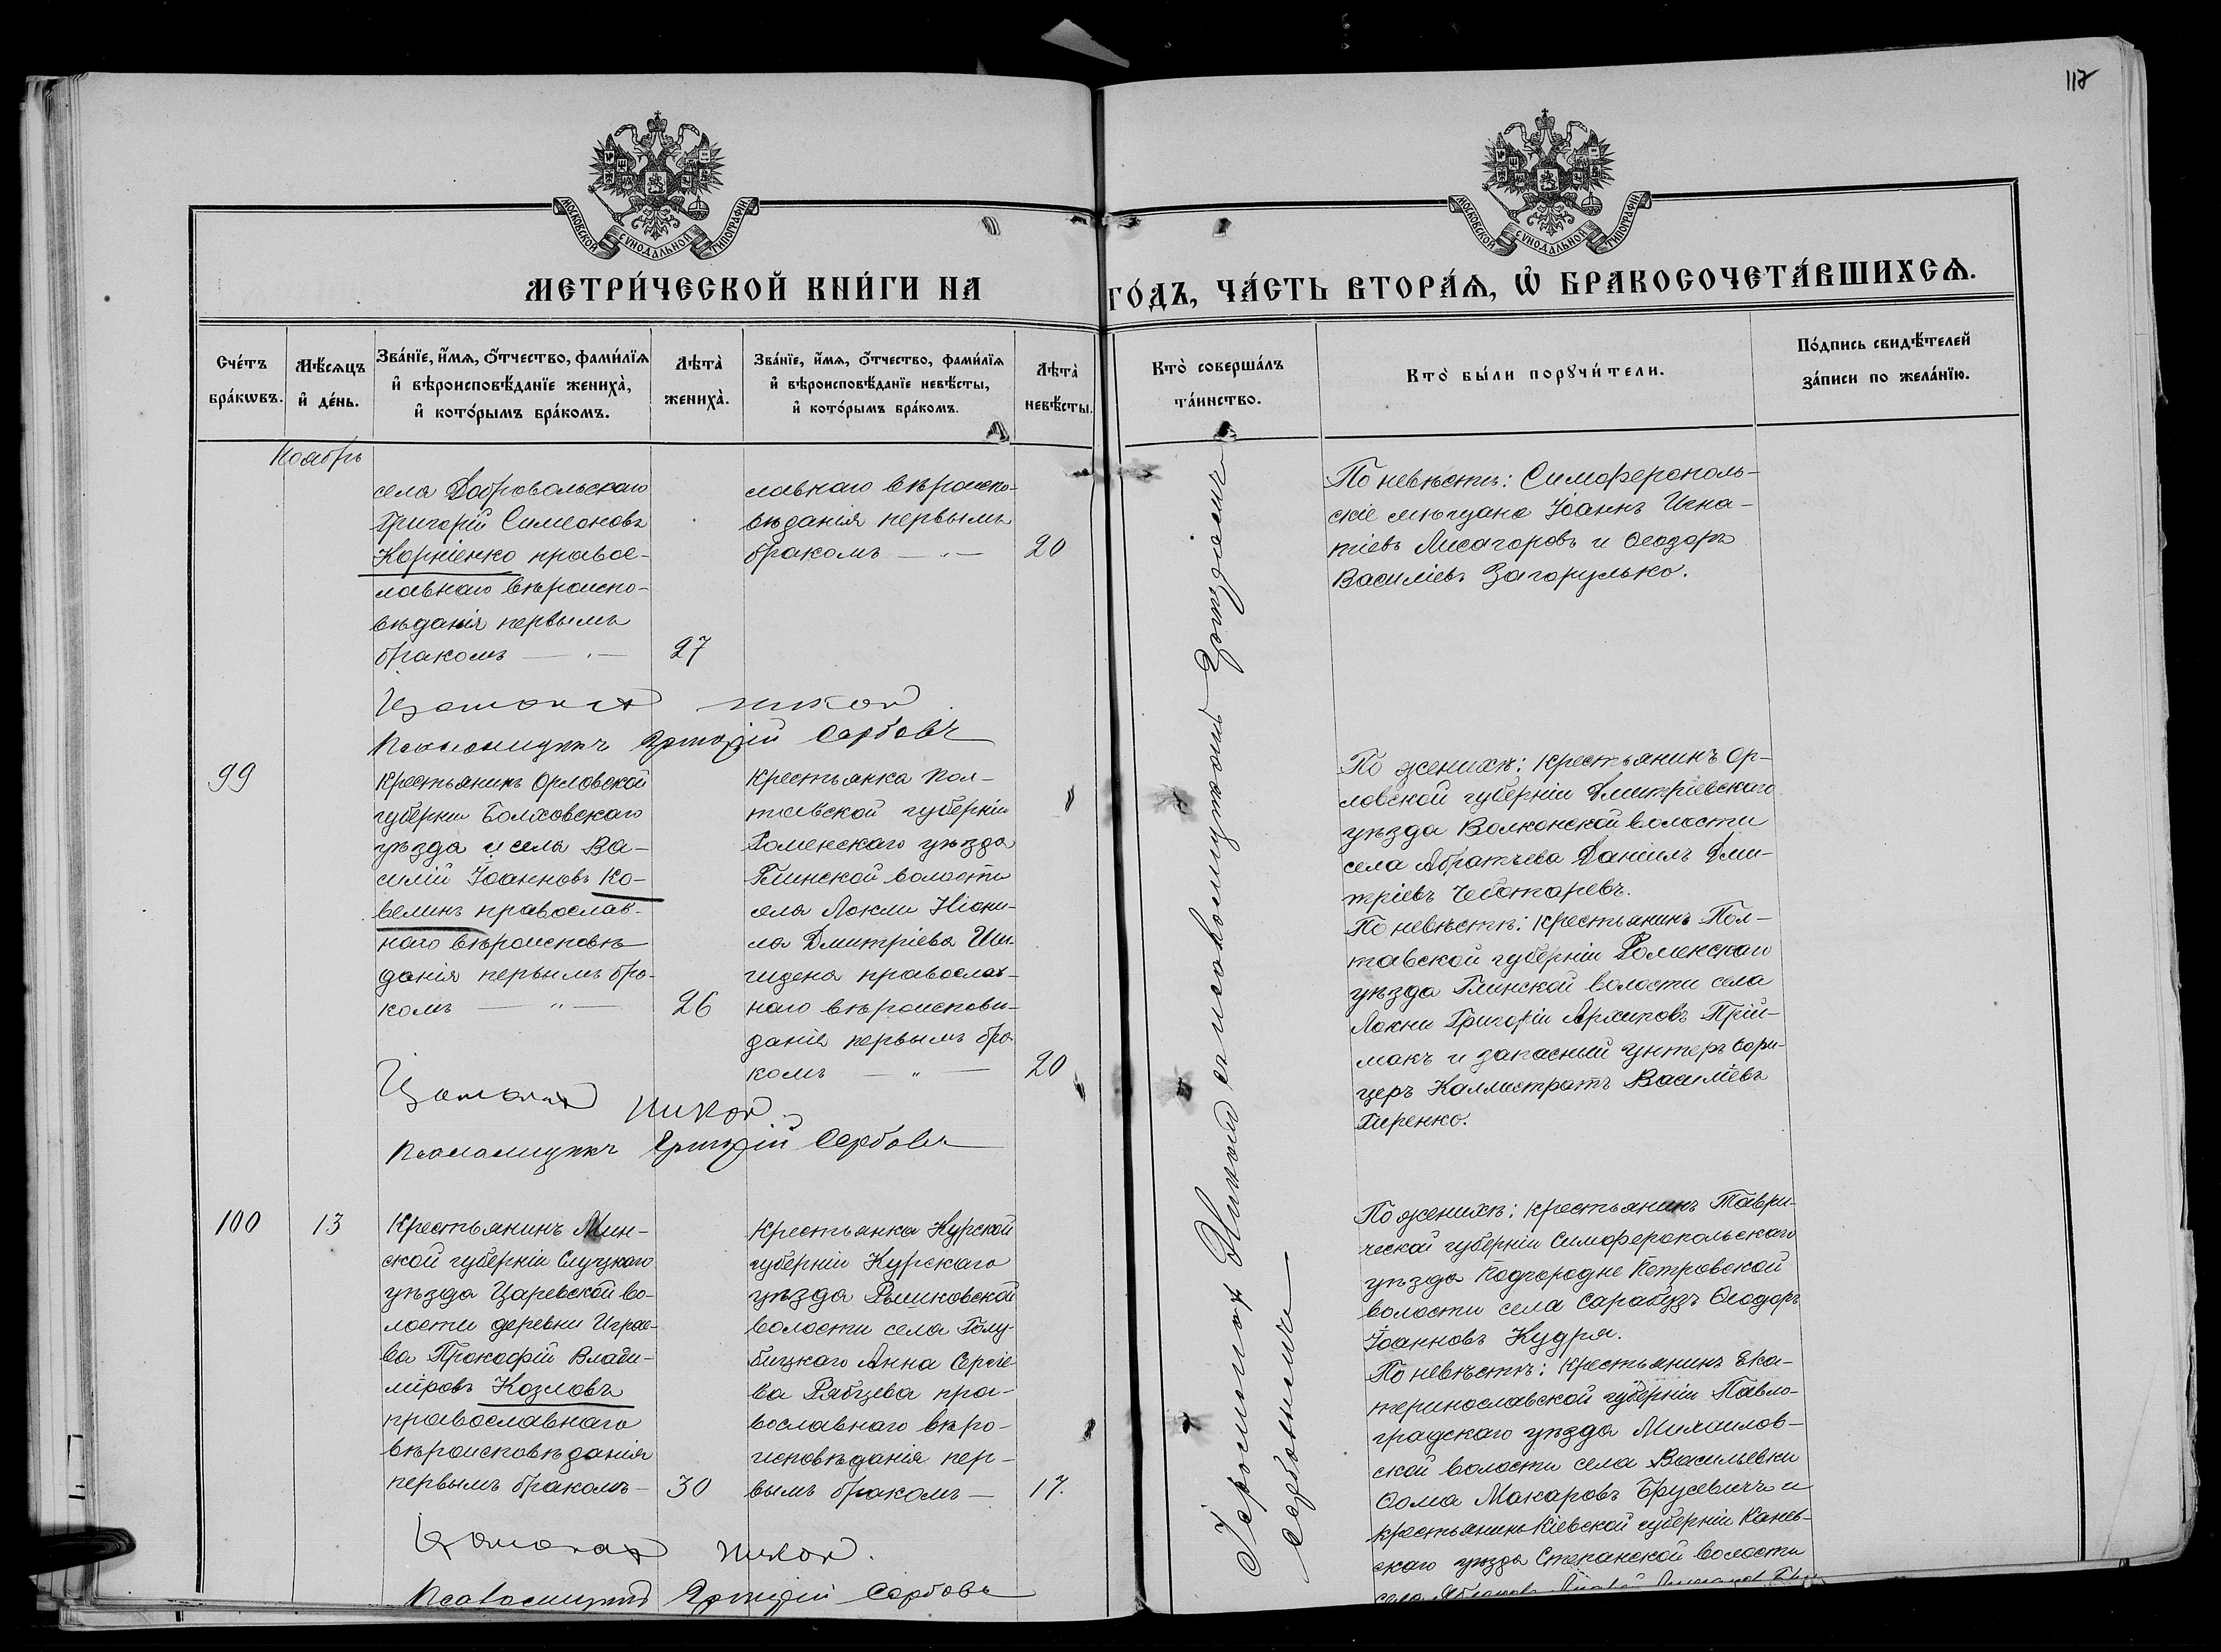 117
МОСКОВСКОЙ СѴНОДАЛЬНОЙ ТИПОГРАФІИ
МОСКОВСКОЙ СѴНОДАЛЬНОЙ ТИПОГРАФІИ
МЕТРИ́ЧЕСКОЙ КНИ́ГИ НА
ГО́ДЪ, ЧА́СТЬ ВТОРА́Ѧ, Ѽ БРАКОСОЧЕТА́ВШИХСѦ.
Сче́тъ
бра́кѡвъ.
Мѣ́сяцъ
и҆ де́нь.
Зва́нїе, и҆́мѧ, ѻ҆́тчество, фами́лїѧ
и҆ вѣроисповѣ́данїе жениха̀,
и҆ кото́рымъ бра́комъ.
Лѣта̀
жениха̀.
Зва́нїе, и҆́мѧ, ѻ҆́тчество, фами́лїѧ
и҆ вѣроисповѣ́данїе невѣ́сты,
и҆ кото́рымъ бра́комъ.
Лѣта̀
невѣ́сты.
Кто̀ соверша́лъ
та́инство.
Кто̀ бы́ли порꙋчи́тели.
По́дпись свидѣ́телей
за́писи по жела́нїю.
Ноябрь
села Добровольскаго
Григорій Симеоновъ
Корніенко правос-
лавнаго вѣроиспо-
вѣданія первымъ
бракомъ — " —
27
славнаго вѣроиспо-
вѣданія первымъ
бракомъ — " —
20
По невѣстѣ: Симферополь-
скіе мѣщане Іоаннъ Игна-
тіевъ Лисогоровъ и Ѳеодоръ
Василіевъ Загорулько.
Никон
Псаломщикъ Григорій Сербовъ
99
Крестьянинъ Орловской
губерніи Болховскаго
уѣзда и села Ва-
силій Іоанновъ Ко-
велинъ православ-
наго вѣроисповѣ-
данія первымъ бра-
комъ — " —
26
Крестьянка Пол-
тавской губерніи
Роменскаго уѣзда
Глинской волости
села Локни Неони-
ла Дмитріева Ши-
православ-
наго вѣроисповѣ-
данія первымъ бра-
комъ — " —
20
По женихѣ: крестьянинъ Ор-
ловской губерніи Дмитріевскаго
уѣзда Волконской волости
села Абратѣева Даніилъ Дми-
тріевъ Чеботаревъ.
По невѣстѣ: крестьянинъ Пол-
тавской губерніи Роменскаго
уѣзда Глинской волости села
Локни Григорій Архиповъ Прій-
макъ и запасный унтеръ офи-
церъ Каллистратъ Василіевъ
Гиренко.
Никон
Псаломщикъ Григорій Сербовъ
100
13
Крестьянинъ Мин-
ской губерніи Слуцкаго
уѣзда Царевской во-
лости деревни Играе-
ва Прокофій Влади-
міровъ Козловъ
православнаго
вѣроисповѣданія
первымъ бракомъ —
30
Крестьянка Курской
губерніи Курскаго
уѣзда Рышковской
волости села Голу-
бицкаго Анна Сергіе-
ва Рябцева пра-
вославнаго вѣро-
исповѣданія пер-
вымъ бракомъ —
17.
По женихѣ: крестьянинъ Таври-
ческой губерніи Симферопольскаго
уѣзда Подгородне Петровской
волости села Сарабузъ Ѳеодоръ
Іоанновъ Кудря.
По невѣстѣ: крестьянинъ Ека-
теринославской губерніи Павло-
градскаго уѣзда Михаилов-
ской волости села Васильевки
Ѳома Макаровъ Брусевичъ и
крестьянинъ Кіевской губерніи Канев-
скаго уѣзда Степанской волости
села
Никон.
Псаломщикъ Григорій Сербовъ
Іеромонах Никонъ съ псаломщикомъ Григоріемъ
Сербовымъ